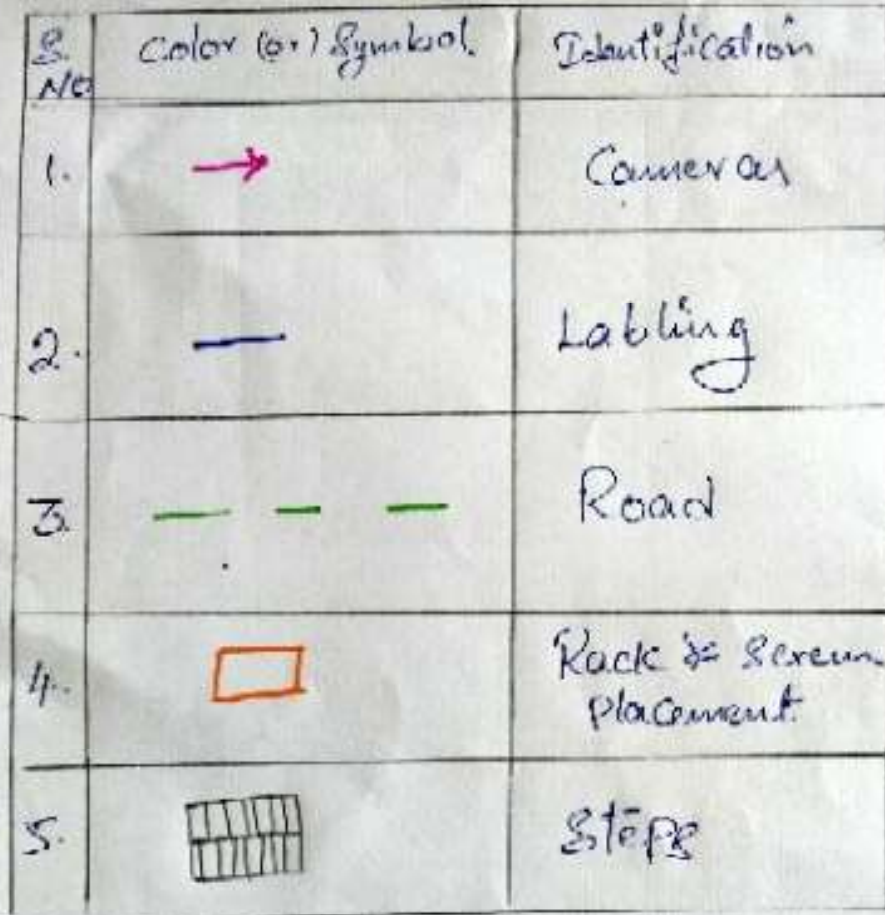 S. No Color (or) Symbol. Identification
1. Cameras
2. Labling
3. Road
4. Rack & Screen
placement.
5. Steps